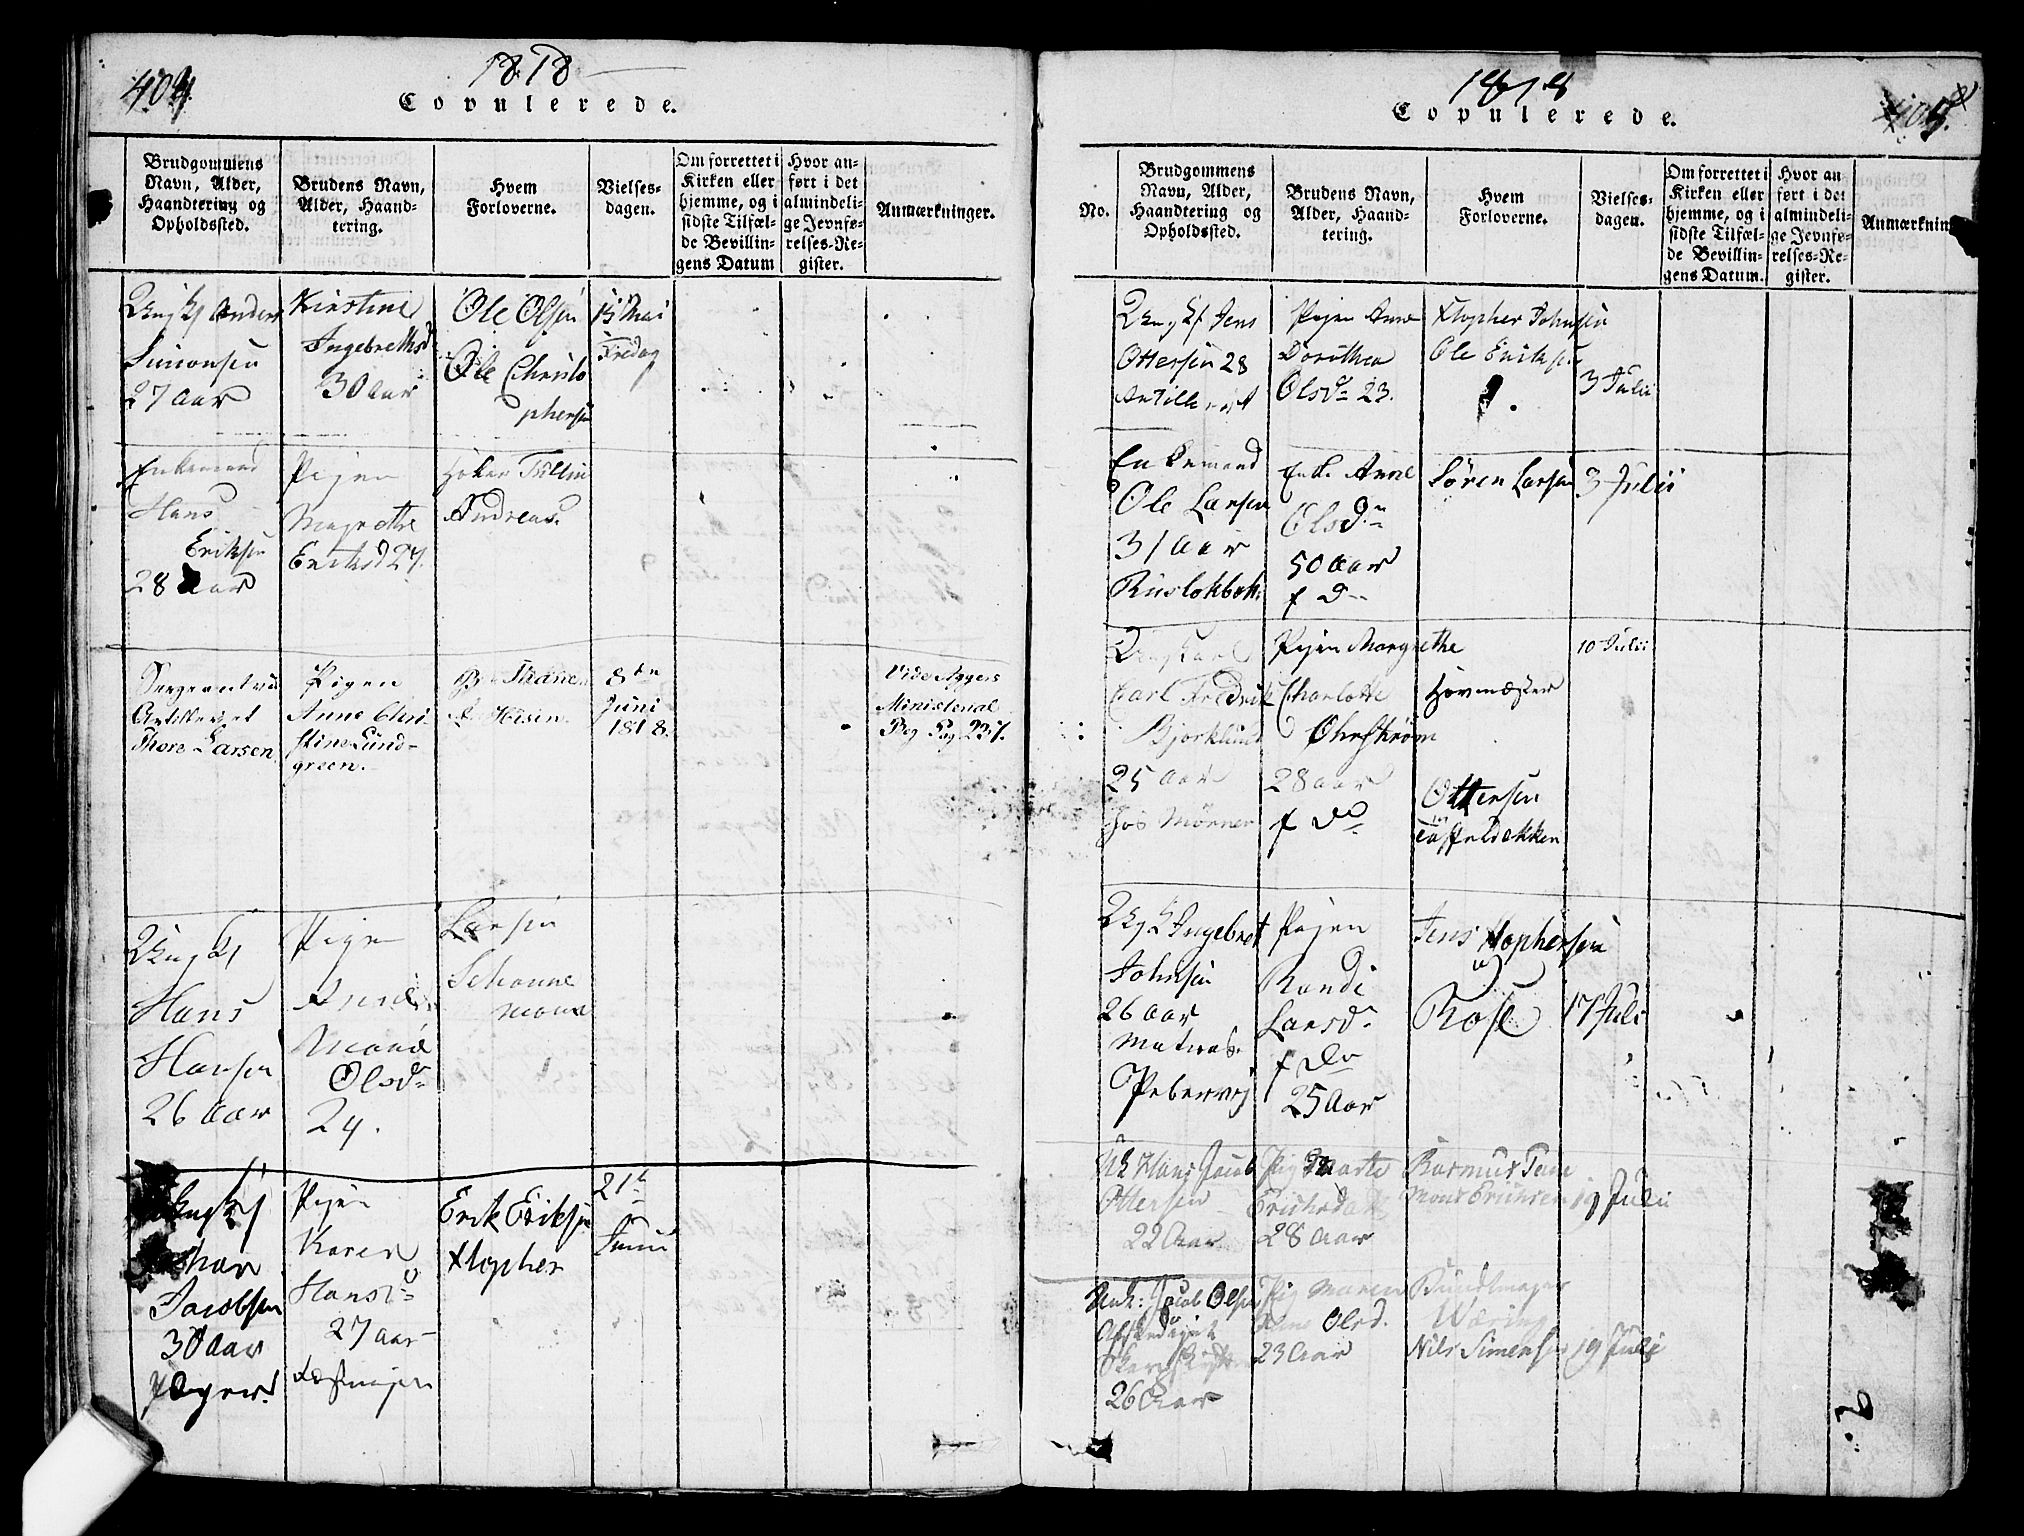 404.
1818
Copulerede.
Brudgommens
Navn, Alder,
Haandtering og
Opholdssted.
Brudens Navn,
Alder, Haand-
tering.
Hvem
Forloverne.
Vielses-
dagen.
Om forrettet i
Kirken eller
hjemme, og i
sidste Tilfæl-
de Bevillin-
gens Datum
Hvor an-
ført i det
almindeli-
ge Jevnfø-
relses-Re-
gister.
Anmærkninger.
Ungk Anders
Simonsen
27 Aar
Kirstine
Ingebrethsd
30 Aar
Ole Olsen
Ole Christo
phersen
15 Mai
Fredag
Enkemand
Hans
Eriksen
28 Aar
Pigen
Magrethe
Eriksd 27.
Høker
Andreas.
Sergeant ved
Artilleriet
Thore Larsen.
Pigen
Anne Chri
stine Lund-
green.
8de
Juni
1818.
Vide Aggers
Ministerial
Bog Pag 237.
Ungk
Hans
Hansen
26 Aar
Pigen
Maria
Olsd
24.
Larsen
Schoune
mann
Ungk
Johan
Jacobsen
30 Aar
Pigen
Karen
Hansd
27 aar
Erik Eriksen
Xtopher
21de
Juni
1818
405.
Copulerede.
No.
Brudgommens
Navn, Alder,
Haandtering og
Opholdssted.
Brudens Navn,
Alder, Haand-
tering.
Hvem
Forloverne.
Vielses-
dagen.
Om forrettet i
Kirken eller
hjemme, og i
sidste Tilfæl-
de Bevillin-
gens Datum.
Hvor an
ført i det
almindeli-
ge Jevnfø-
relses-Re-
gister.
Anmærknin
Ungk Jens
Ottersen 28
Pigen Anne
Dorothea
Olsd 23.
Xtopher Johnsen
Ole Eriksen
3 Julii
Enkemand
Ole Larsen
31 Aar
Ruslokbak.
Enke Anne
Olsd
50 Aar
f D
Sören Larsen
3 Julii
Ungkarl
Karl Fredrik
Bjorklund
25 Aar
hos Mörner
Pigen Margrethe
Charlotte
Ohrström
28 aar
f Do
Hovmæster
Ottersen
Taffeldækker
10 Julii
Ungk Ingebret
Johnsen
26 Aar
Matros
Pebervig
Pigen
Randi
Larsd
f Do
25 Aar
Jens Xtophersen
Rose
17 Juli
Uk Hans Jacob
Ottersen
22 Aar
Pig Marte
Erichsdat
28 Aar
Rasmus
Mons Erichsen
19 Juli
Unk: Jacob Olsen
Afskediget
26 Aar
Pig Maren
Olsd.
23 Aar
Bundtmager
Wæring
Nils Simensen
19 Juli